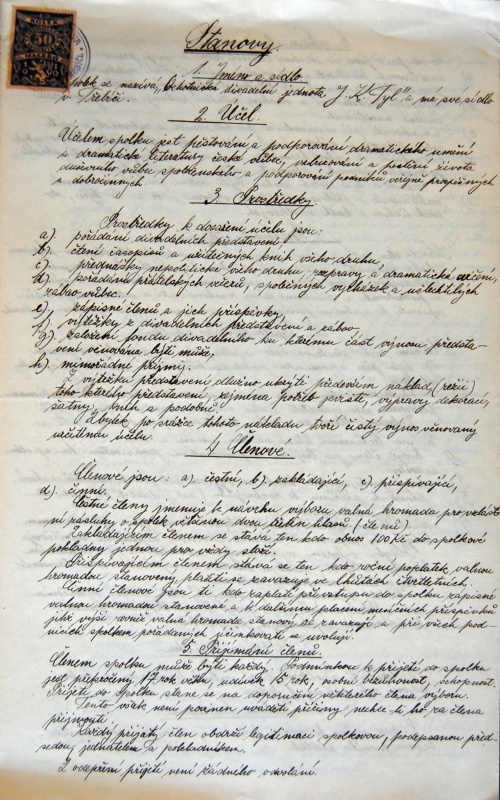 50
Stanovy.
1. Jmeno a sídlo
Spolek se nazývá „Ochotnická divadelní jednota J. K. Tyl" a má své sídlo
v Třebíči.
2. Účel.
Účelem spolku jest pěstování a podporování dramatického umění
a dramatické literatury české vůbec, vzbuzování a posílení života
duševního vůbec společenského a podporování podniků veřejně prospěšných
a dobročinných
3. Prostředky
Prostředky k dosažení účelu jsou:
a) pořádání divadelních představení,
b) čtení časopisů a užitečných knih všeho druhu,
c) přednášky nepolitické všeho druhu, rozpravy a dramatická cvičení,
d) pořádání přátelských večírků, společných vycházek a ušlechtilých
zábav vůbec.
e) zápisné členů a jich příspěvky
f) výtěžky z divadelních představení a zábav,
g) založení fondu divadelního ku kterému část výnosu předsta-
vení věnována býti může,
h) mimořádné příjmy.
Z výtěžku představení dlužno ukrýti především náklad (režii)
toho kterého představení, zejmena potřeb jeviště, výpravy dekorací,
šatny, knih a podobně.
Zbytek po srážce tohoto nákladu tvoří čistý výnos věnovaný
určitému účelu.
4. Členové.
Členové jsou: a) čestní, b) zakládající, c) přispívající,
d) činní.
Čestné členy jmenuje k návrhu výboru valná hromada pro zvlášt-
ní zásluhy o spolek většinou dvou třetin hlasů (členů)
Zakládajícím členem se stává ten kdo obnos 100 Kč do spolkové
pokladny jednou pro vždy složí.
Přispívajícím členem stává se ten kdo roční poplatek valnou
hromadou stanovený, platiti se zavazuje ve lhůtách čtvrtletních.
Činní členové jsou ti kdo zaplatí při vstupu do spolku zápisné
valnou hromadou stanovené a k dalšímu placení měsíčních příspěvků
jichž výši rovněž valná hromada stanoví, se zavazují a při všech pod-
nicích spolkem pořádaných účinkovati se uvolují.
5. Přijímání členů.
Členem spolku může býti každý. Podmínkou k přijetí do spolku
jest překročený 17 rok věku, u dívek 15 rok, osobní bezúhonost, schopnost.
Přijetí do spolku stane se na doporučení některého člena výboru.
Tento však není povinen uváděti příčiny nechce li ho za člena
přijmouti
Každý přijatý člen obdrží legitimaci spolkovou, podepsanou před-
sedou, jednatelem a pokladníkem.
Z odepření přijetí není žádného odvolání.